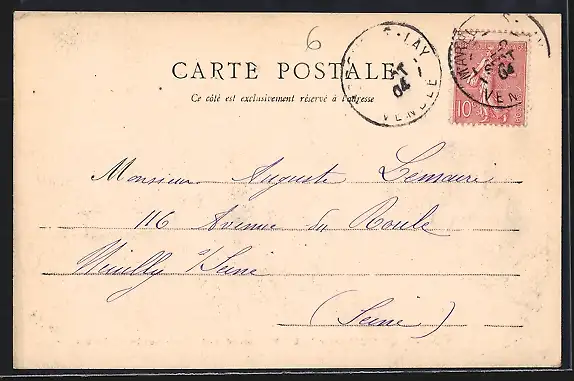 6
CARTE POSTALE
Ce côté est exclusivement réservé à l'adresse
LAY
04
VENDÉE
MAR
04
VEN
10
Monsieur Auguste Lemaire
116 Avenue du Roule
Neuilly s/Seine
(Seine)